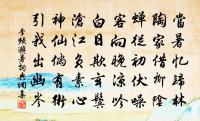 當暑憶歸林
陶家借柳陰
蟬從初伏噪
客向晚涼吟
白日欺玄鬢
滄江負素心
神仙倘有術
引我出幽岑
李頻避暑